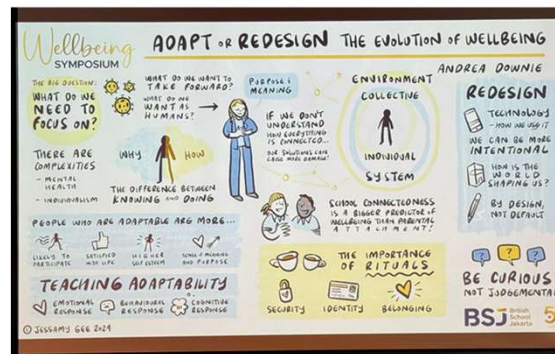 Wellbeing
SYMPOSIUM
ADAPT OR REDESIGN THE EVOLUTION OF WELLBEING
ANDREA DOWNIE
THE BIG QUESTION:
WHAT DO WE
NEED TO
FOCUS ON?
WHAT DO WE WANT TO
TAKE FORWARD?
WHAT DO WE
WANT AS
HUMANS?
THERE ARE
COMPLEXITIES
- MENTAL
HEALTH
- INDIVIDUALISM
WHY
HOW
THE DIFFERENCE BETWEEN
KNOWING AND DOING
PURPOSE &
MEANING
IF WE DON'T
UNDERSTAND
HOW EVERYTHING
IS CONNECTED...
OUR SOLUTIONS CAN
CAUSE MORE DAMAGE!
ENVIRONMENT
COLLECTIVE
INDIVIDUAL
SYSTEM
SCHOOL CONNECTEDNESS
IS A BIGGER PREDICTOR OF
WELLBEING THAN PARENTAL
ATTACHMENT!
REDESIGN
TECHNOLOGY
- HOW WE USE IT
WE CAN BE MORE
INTENTIONAL
HOW IS THE
WORLD
SHAPING US?
BY DESIGN,
NOT DEFAULT
PEOPLE WHO ARE ADAPTABLE ARE MORE...
LIKELY TO
PARTICIPATE
SATISFIED
WITH LIFE
HIGHER
SELF ESTEEM
SENSE OF MEANING
AND PURPOSE
TEACHING ADAPTABILITY
EMOTIONAL
RESPONSE
BEHAVIOURAL
RESPONSE
COGNITIVE
RESPONSE
THE IMPORTANCE
OF RITUALS
SECURITY
IDENTITY
BELONGING
? ? ?
BE CURIOUS
NOT JUDGEMENTAL
BSJ British
School
Jakarta
© JESSAMY GEE 2024